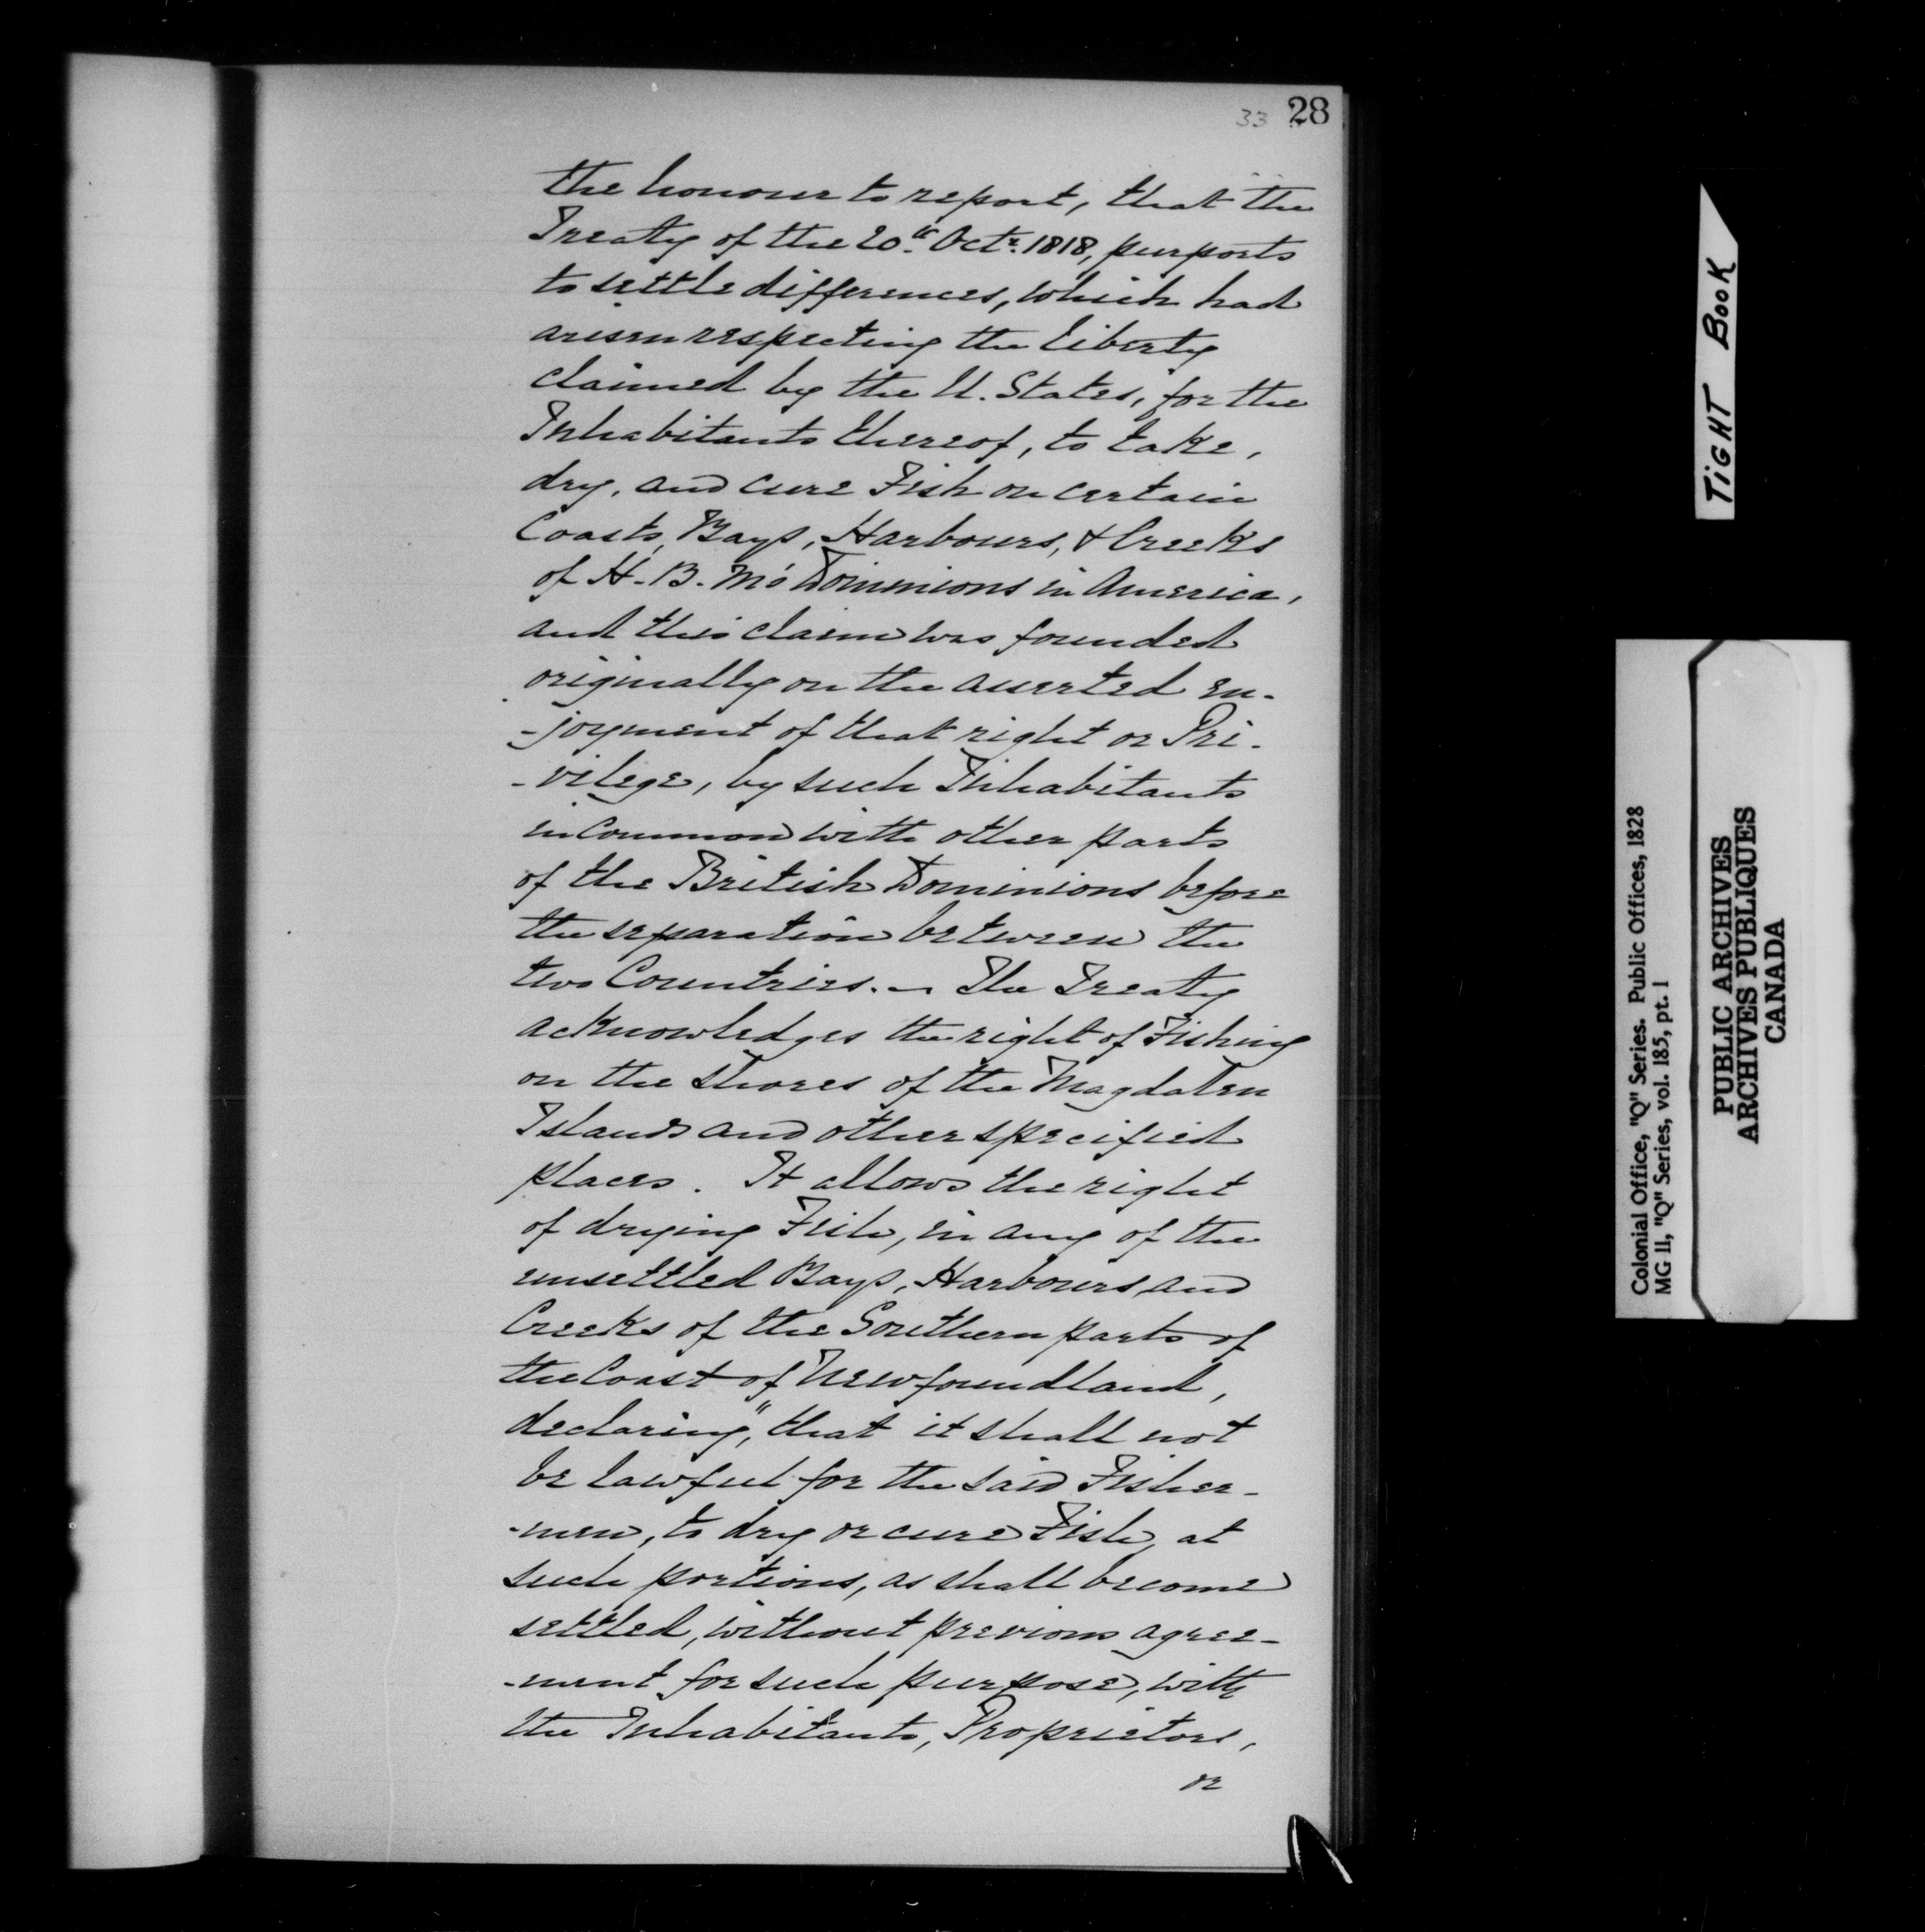 33 28
the honour to report, that the
Treaty of the 20th Octr. 1818, purports
to settle differences, which had
arisen respecting the liberty
claimed by the U. States, for the
Inhabitants thereof, to take,
dry, and cure Fish on certain
Coasts, Bays, Harbours, & Creeks
of H. B. M's Dominions in America,
and this claim was founded
originally on the asserted en-
-joyment of that right or Pri-
-vilege, by such Inhabitants
in common with other parts
of the British Dominions before
the separation between the
two Countries. — The Treaty
acknowledges the right of Fishing
on the shores of the Magdalen
Islands and other specified
places. It allows the right
of drying Fish, in any of the
unsettled Bays, Harbours, and
Creeks of the Southern parts of
the Coast of Newfoundland,
declaring, "that it shall not
be lawful for the said Fisher-
-men, to dry or cure Fish, at
such portions, as shall become
settled, without previous agree-
-ment for such purpose, with
the Inhabitants, Proprietors,
or
TIGHT BOOK
Colonial Office, "Q" Series. Public Offices, 1828
MG 11, "Q" Series, vol. 185, pt. 1
PUBLIC ARCHIVES
ARCHIVES PUBLIQUES
CANADA